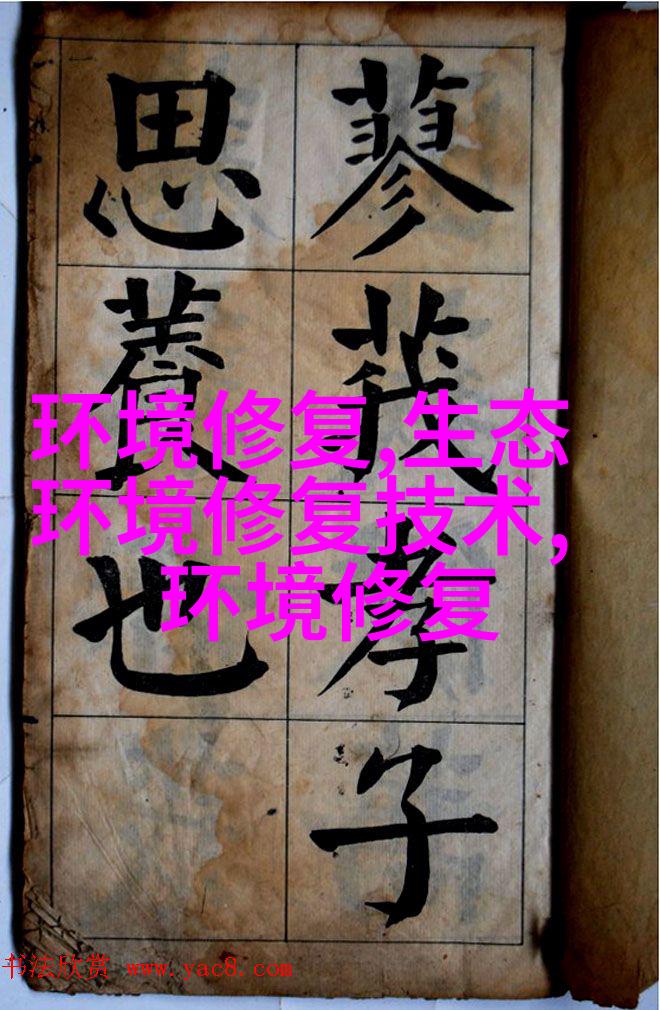 蓼莪孝子
思養也
环境修复,生态
环境修复技术,
环境修复
书法欣赏 www.yac8.com